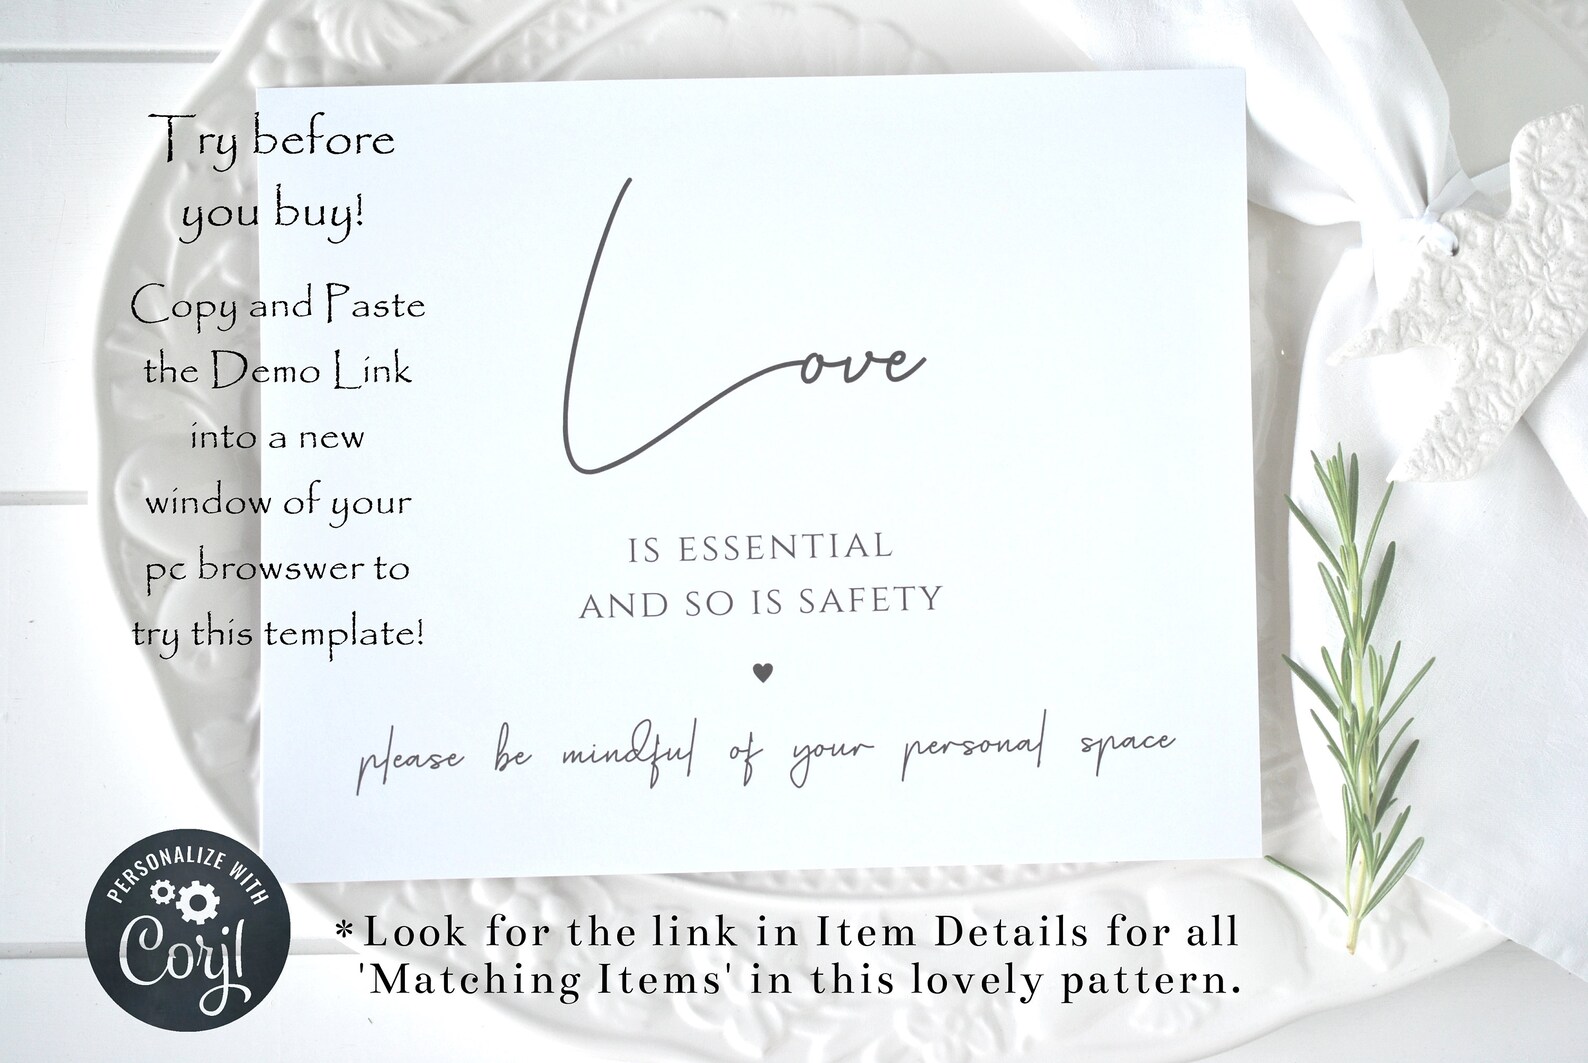 Try before
you buy!
Copy and Paste
the Demo Link
into a new
window of your
pc browswer to
try this template!
Love
IS ESSENTIAL
AND SO IS SAFETY
please be mindful of your personal space
PERSONALIZE WITH
Corjl
*Look for the link in Item Details for all
'Matching Items' in this lovely pattern.